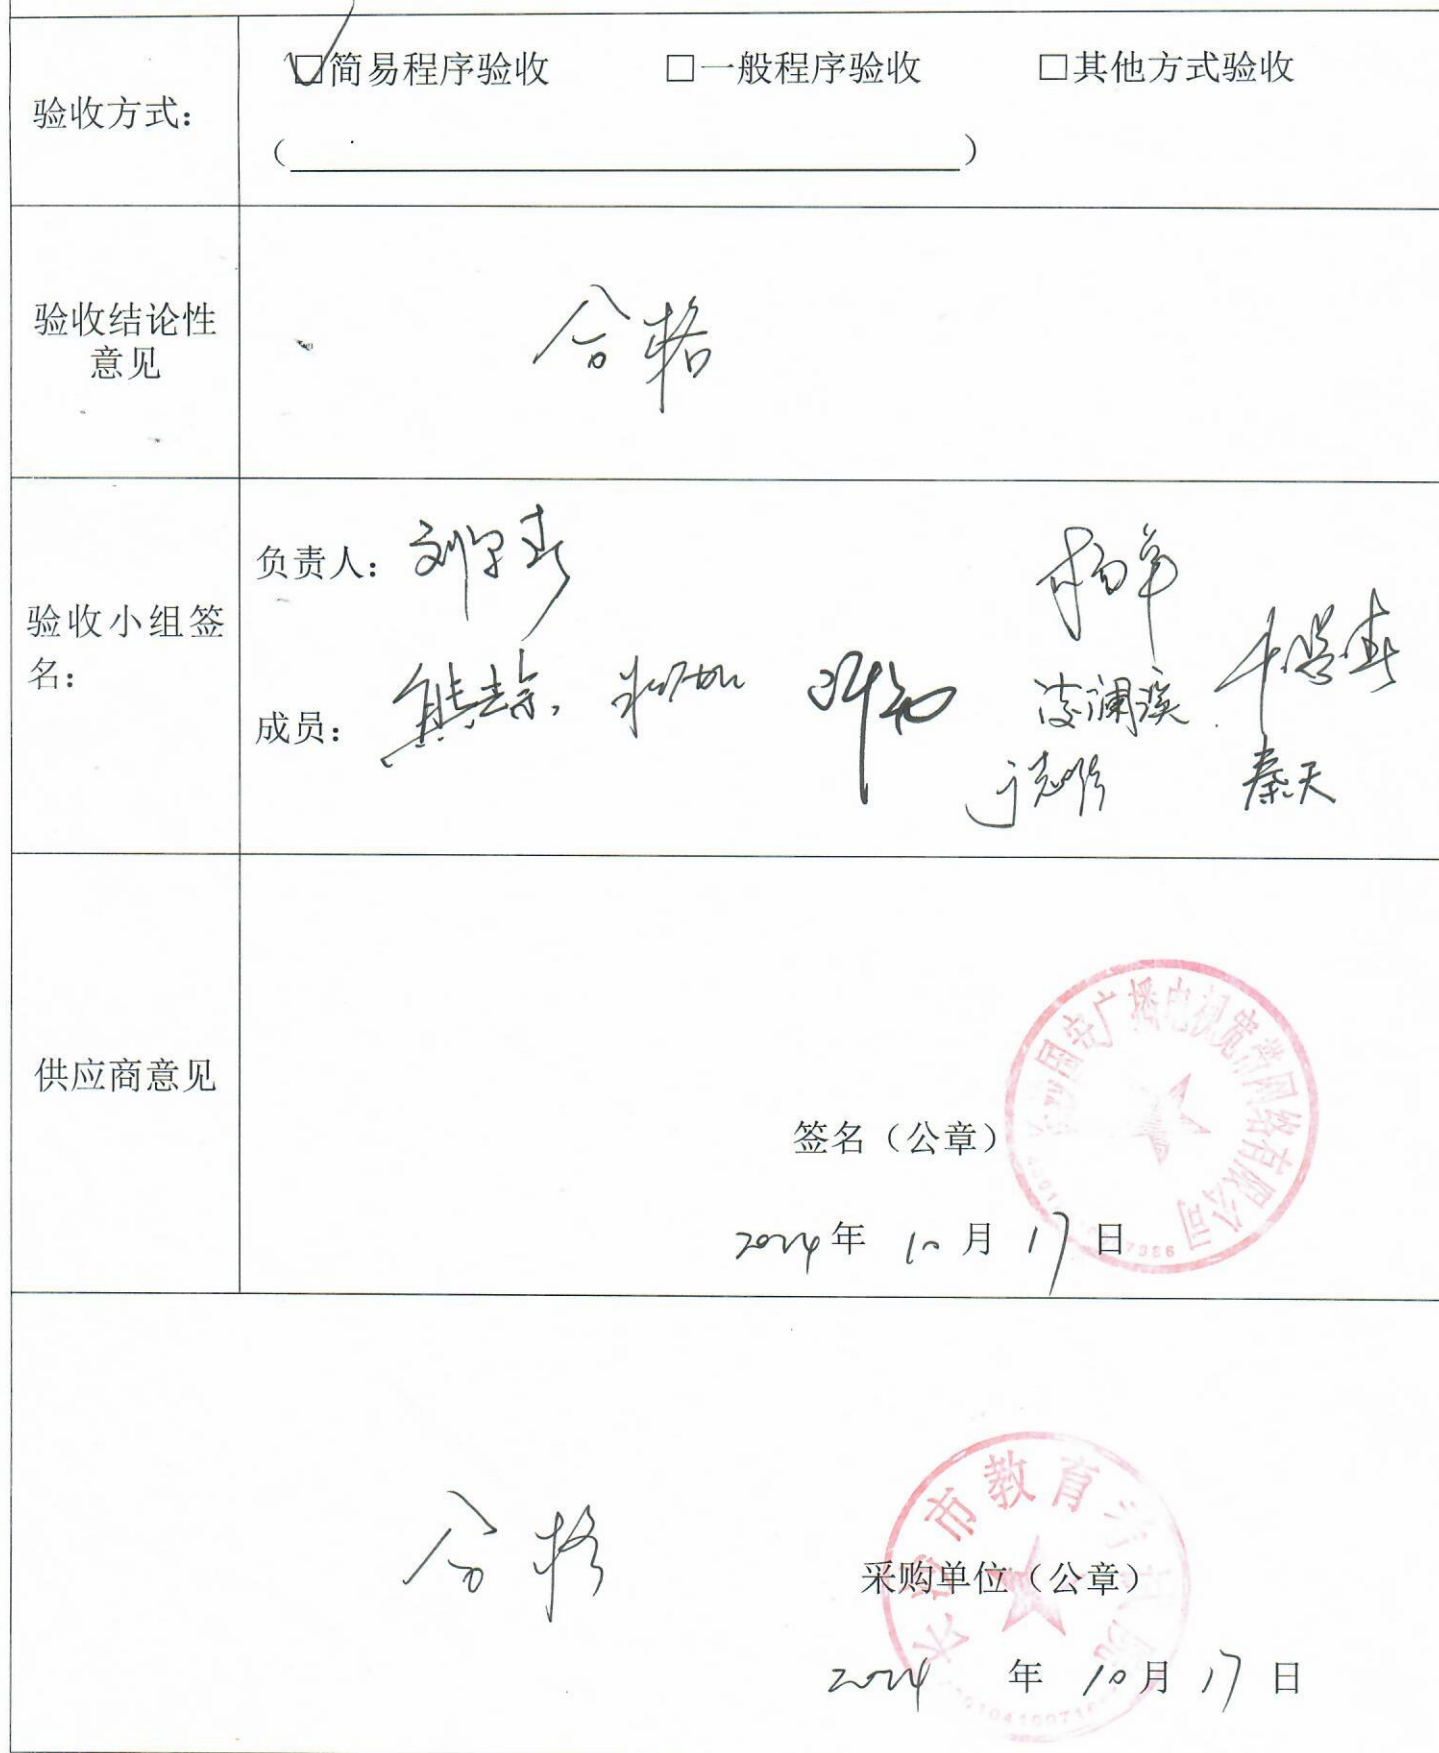 验收方式：
☑简易程序验收 □一般程序验收 □其他方式验收
（ ）
验收结论性
意见
合格
验收小组签
名：
负责人：
成员：
凌澜溪
秦天
供应商意见
国安广播电视宽带网络有限公司
签名（公章）
2024年 10月 17日
合格
长沙市教育
采购单位（公章）
2024 年 10月 17日